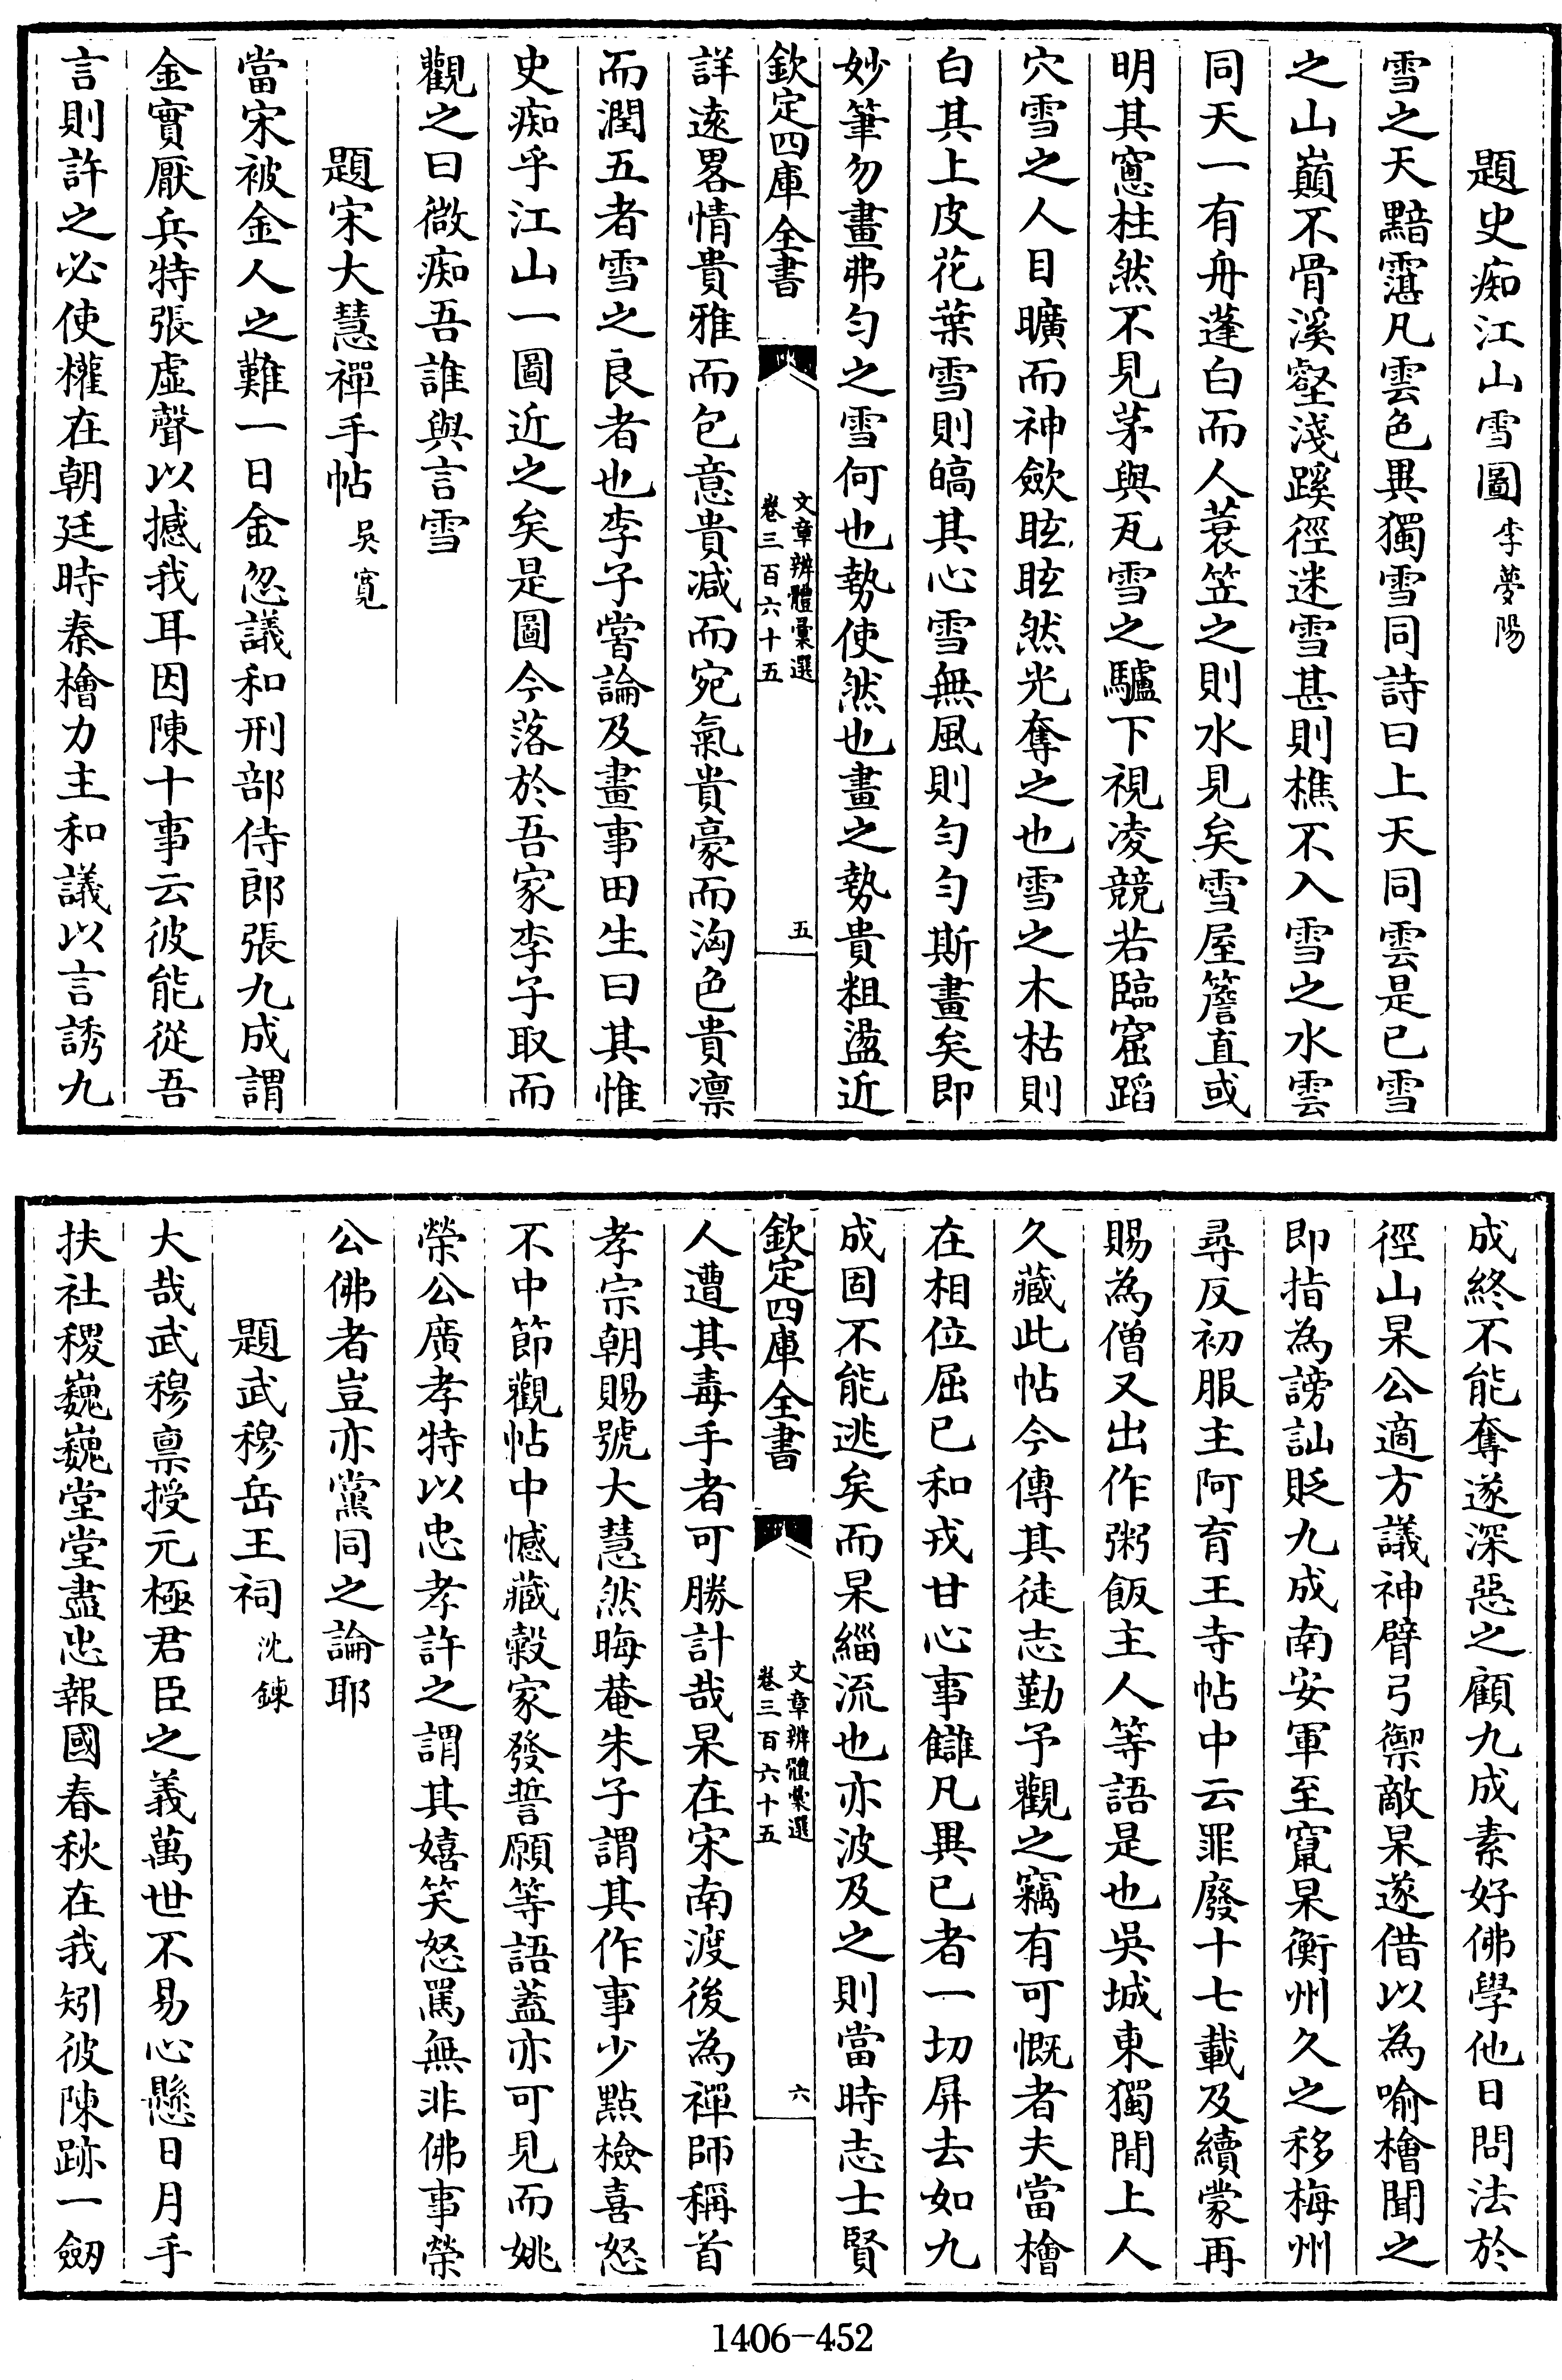 題史痴江山雪圖李夢陽
雪之天黯霮凡雲色異獨雪同詩曰上天同雲是已雪
之山巔不骨溪壑淺蹊徑迷雪甚則樵不入雪之水雲
同天一有舟蓬白而人蓑笠之則水見矣雪屋簷直或
明其窻柱然不見茅與瓦雪之驢下視凌競若臨窟蹈
穴雪之人目曠而神歛眩眩然光奪之也雪之木枯則
白其上皮花葉雪則皜其心雪無風則勻勻斯畫矣即
妙筆勿畫弗勻之雪何也勢使然也畫之勢貴粗盪近
欽定四庫全書
文章辨體彙選
卷三百六十五
五
詳遠畧情貴雅而包意貴減而宛氣貴豪而洶色貴凛
而潤五者雪之良者也李子嘗論及畫事田生曰其惟
史痴乎江山一圖近之矣是圖今落於吾家李子取而
觀之曰微痴吾誰與言雪
題宋大慧禪手帖吳寬
當宋被金人之難一日金忽議和刑部侍郎張九成謂
金實厭兵特張虛聲以撼我耳因陳十事云彼能從吾
言則許之必使權在朝廷時秦檜力主和議以言誘九
成終不能奪遂深惡之顧九成素好佛學他日問法於
徑山杲公適方議神臂弓禦敵杲遂借以為喻檜聞之
即指為謗訕貶九成南安軍至竄杲衡州久之移梅州
尋反初服主阿育王寺帖中云罪廢十七載及續蒙再
賜為僧又出作粥飯主人等語是也吳城東獨閒上人
久藏此帖今傳其徒志勤予觀之竊有可慨者夫當檜
在相位屈已和戎甘心事讎凡異已者一切屏去如九
成固不能逃矣而杲緇流也亦波及之則當時志士賢
欽定四庫全書
文章辨體彙選
卷三百六十五
六
人遭其毒手者可勝計哉杲在宋南渡後為禪師稱首
孝宗朝賜號大慧然晦菴朱子謂其作事少點檢喜怒
不中節觀帖中憾藏穀家發誓願等語葢亦可見而姚
榮公廣孝特以忠孝許之謂其嬉笑怒罵無非佛事榮
公佛者豈亦黨同之論耶
題武穆岳王祠沈鍊
大哉武穆禀授元極君臣之義萬世不易心懸日月手
扶社稷巍巍堂堂盡忠報國春秋在我矧彼陳跡一劒
1406-452